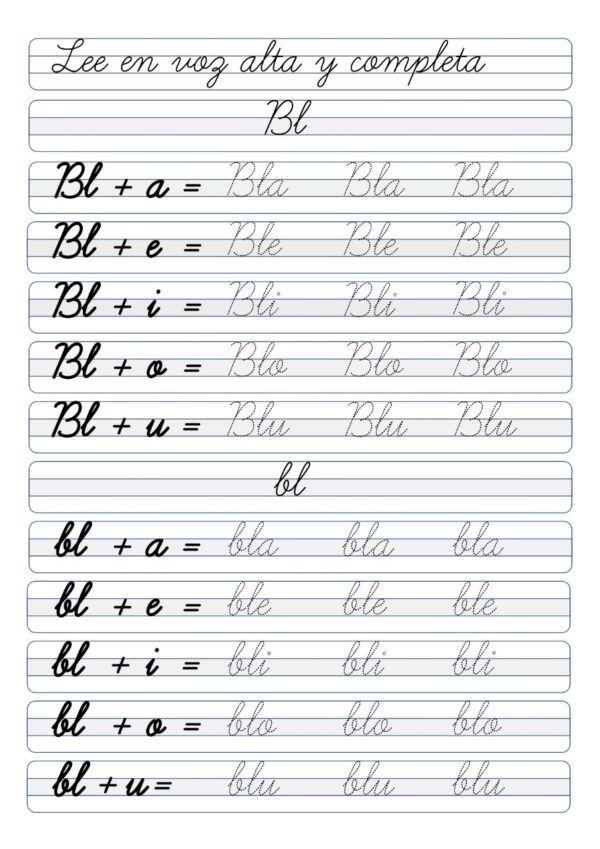 Lee en voz alta y completa
Bl
Bl + a = Bla Bla Bla
Bl + e = Ble Ble Ble
Bl + i = Bli Bli Bli
Bl + o = Blo Blo Blo
Bl + u = Blu Blu Blu
bl
bl + a = bla bla bla
bl + e = ble ble ble
bl + i = bli bli bli
bl + o = blo blo blo
bl + u = blu blu blu